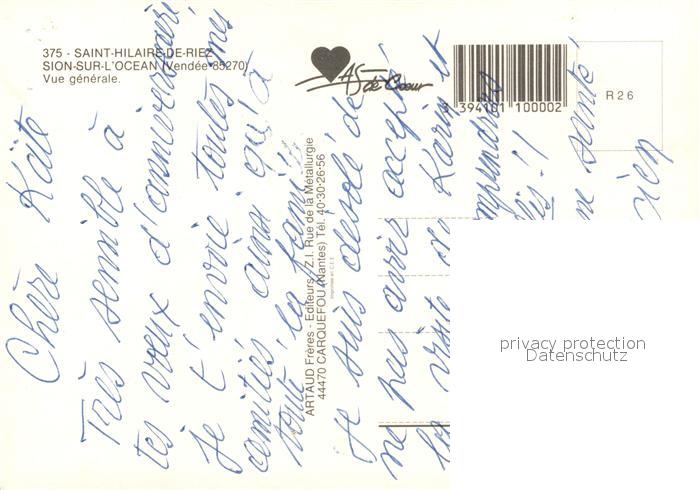 375 - SAINT-HILAIRE-DE-RIEZ
SION-SUR-L'OCEAN (Vendée 85270)
Vue générale.
AS de Coeur
3 394101 100002
R 26
ARTAUD Frères - Editeurs - Z.I. Rue de la Métallurgie
44470 CARQUEFOU (Nantes) Tél. 40-30-26-56
Chère Käte
Très sensible à
tes voeux d'anniversaire
Je t'envoie toutes mes
amitiés ainsi qu'à
toute la famille
Je suis désolé de
ne pas avoir accepté
la visite Karin et
ne santé
rien
privacy protection
Datenschutz